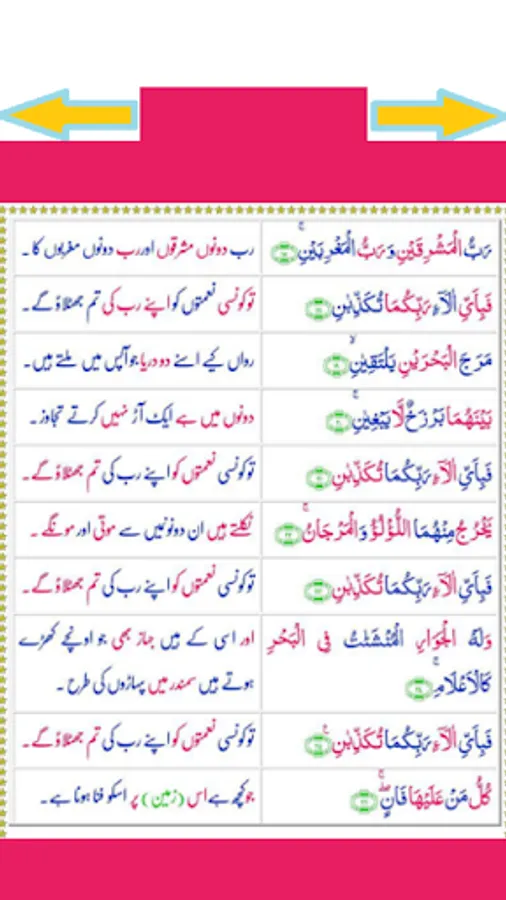 رَبُّ الْمَشْرِقَيْنِ وَرَبُّ الْمَغْرِبَيْنِ ۚ ﴿١٧﴾
رب دونوں مشرقوں اور رب دونوں مغربوں کا۔
فَبِاَيِّ اٰلَآءِ رَبِّكُمَا تُكَذِّبٰنِ ﴿١٨﴾
تو کونسی نعمتوں کو اپنے رب کی تم جھٹلاؤ گے۔
مَرَجَ الْبَحْرَيْنِ يَلْتَقِيٰنِ ۙ ﴿١٩﴾
رواں کیے اسنے دو دریا جو آپس میں ملتے ہیں۔
بَيْنَهُمَا بَرْزَخٌ لَّا يَبْغِيٰنِ ۚ ﴿٢٠﴾
دونوں میں ہے ایک آڑ نہیں کرتے تجاوز۔
فَبِاَيِّ اٰلَآءِ رَبِّكُمَا تُكَذِّبٰنِ ﴿٢١﴾
تو کونسی نعمتوں کو اپنے رب کی تم جھٹلاؤ گے۔
يَخْرُجُ مِنْهُمَا اللُّؤْلُؤُ وَالْمَرْجَانُ ۚ ﴿٢٢﴾
نکلتے ہیں ان دونوںمیں سے موتی اور مونگے۔
فَبِاَيِّ اٰلَآءِ رَبِّكُمَا تُكَذِّبٰنِ ﴿٢٣﴾
تو کونسی نعمتوں کو اپنے رب کی تم جھٹلاؤ گے۔
وَلَهُ الْجَوَارِ الْمُنْشَـٰٔتُ فِي الْبَحْرِ
كَالْاَعْلَامِ ۚ ﴿٢٤﴾
اور اسی کے ہیں جہاز بھی جو اونچے کھڑے
ہوتے ہیں سمندر میں پہاڑوں کی طرح۔
فَبِاَيِّ اٰلَآءِ رَبِّكُمَا تُكَذِّبٰنِ ۚ ﴿٢٥﴾
تو کونسی نعمتوں کو اپنے رب کی تم جھٹلاؤ گے۔
كُلُّ مَنْ عَلَيْهَا فَانٍ ۚۖ ﴿٢٦﴾
جو کچھ ہے اس (زمین) پر اسکو فنا ہونا ہے۔